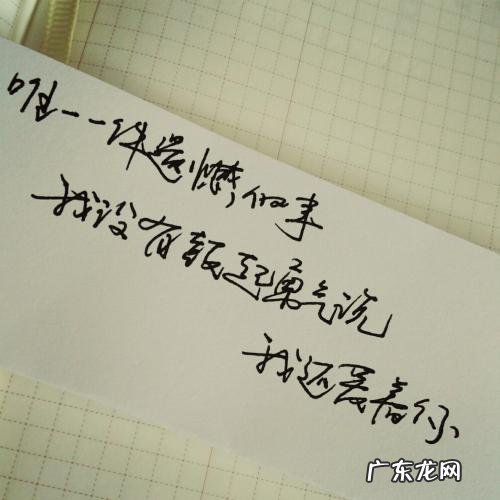 唯一一件遗憾的事
我没有鼓起勇气说
我还爱着你
广东龙网